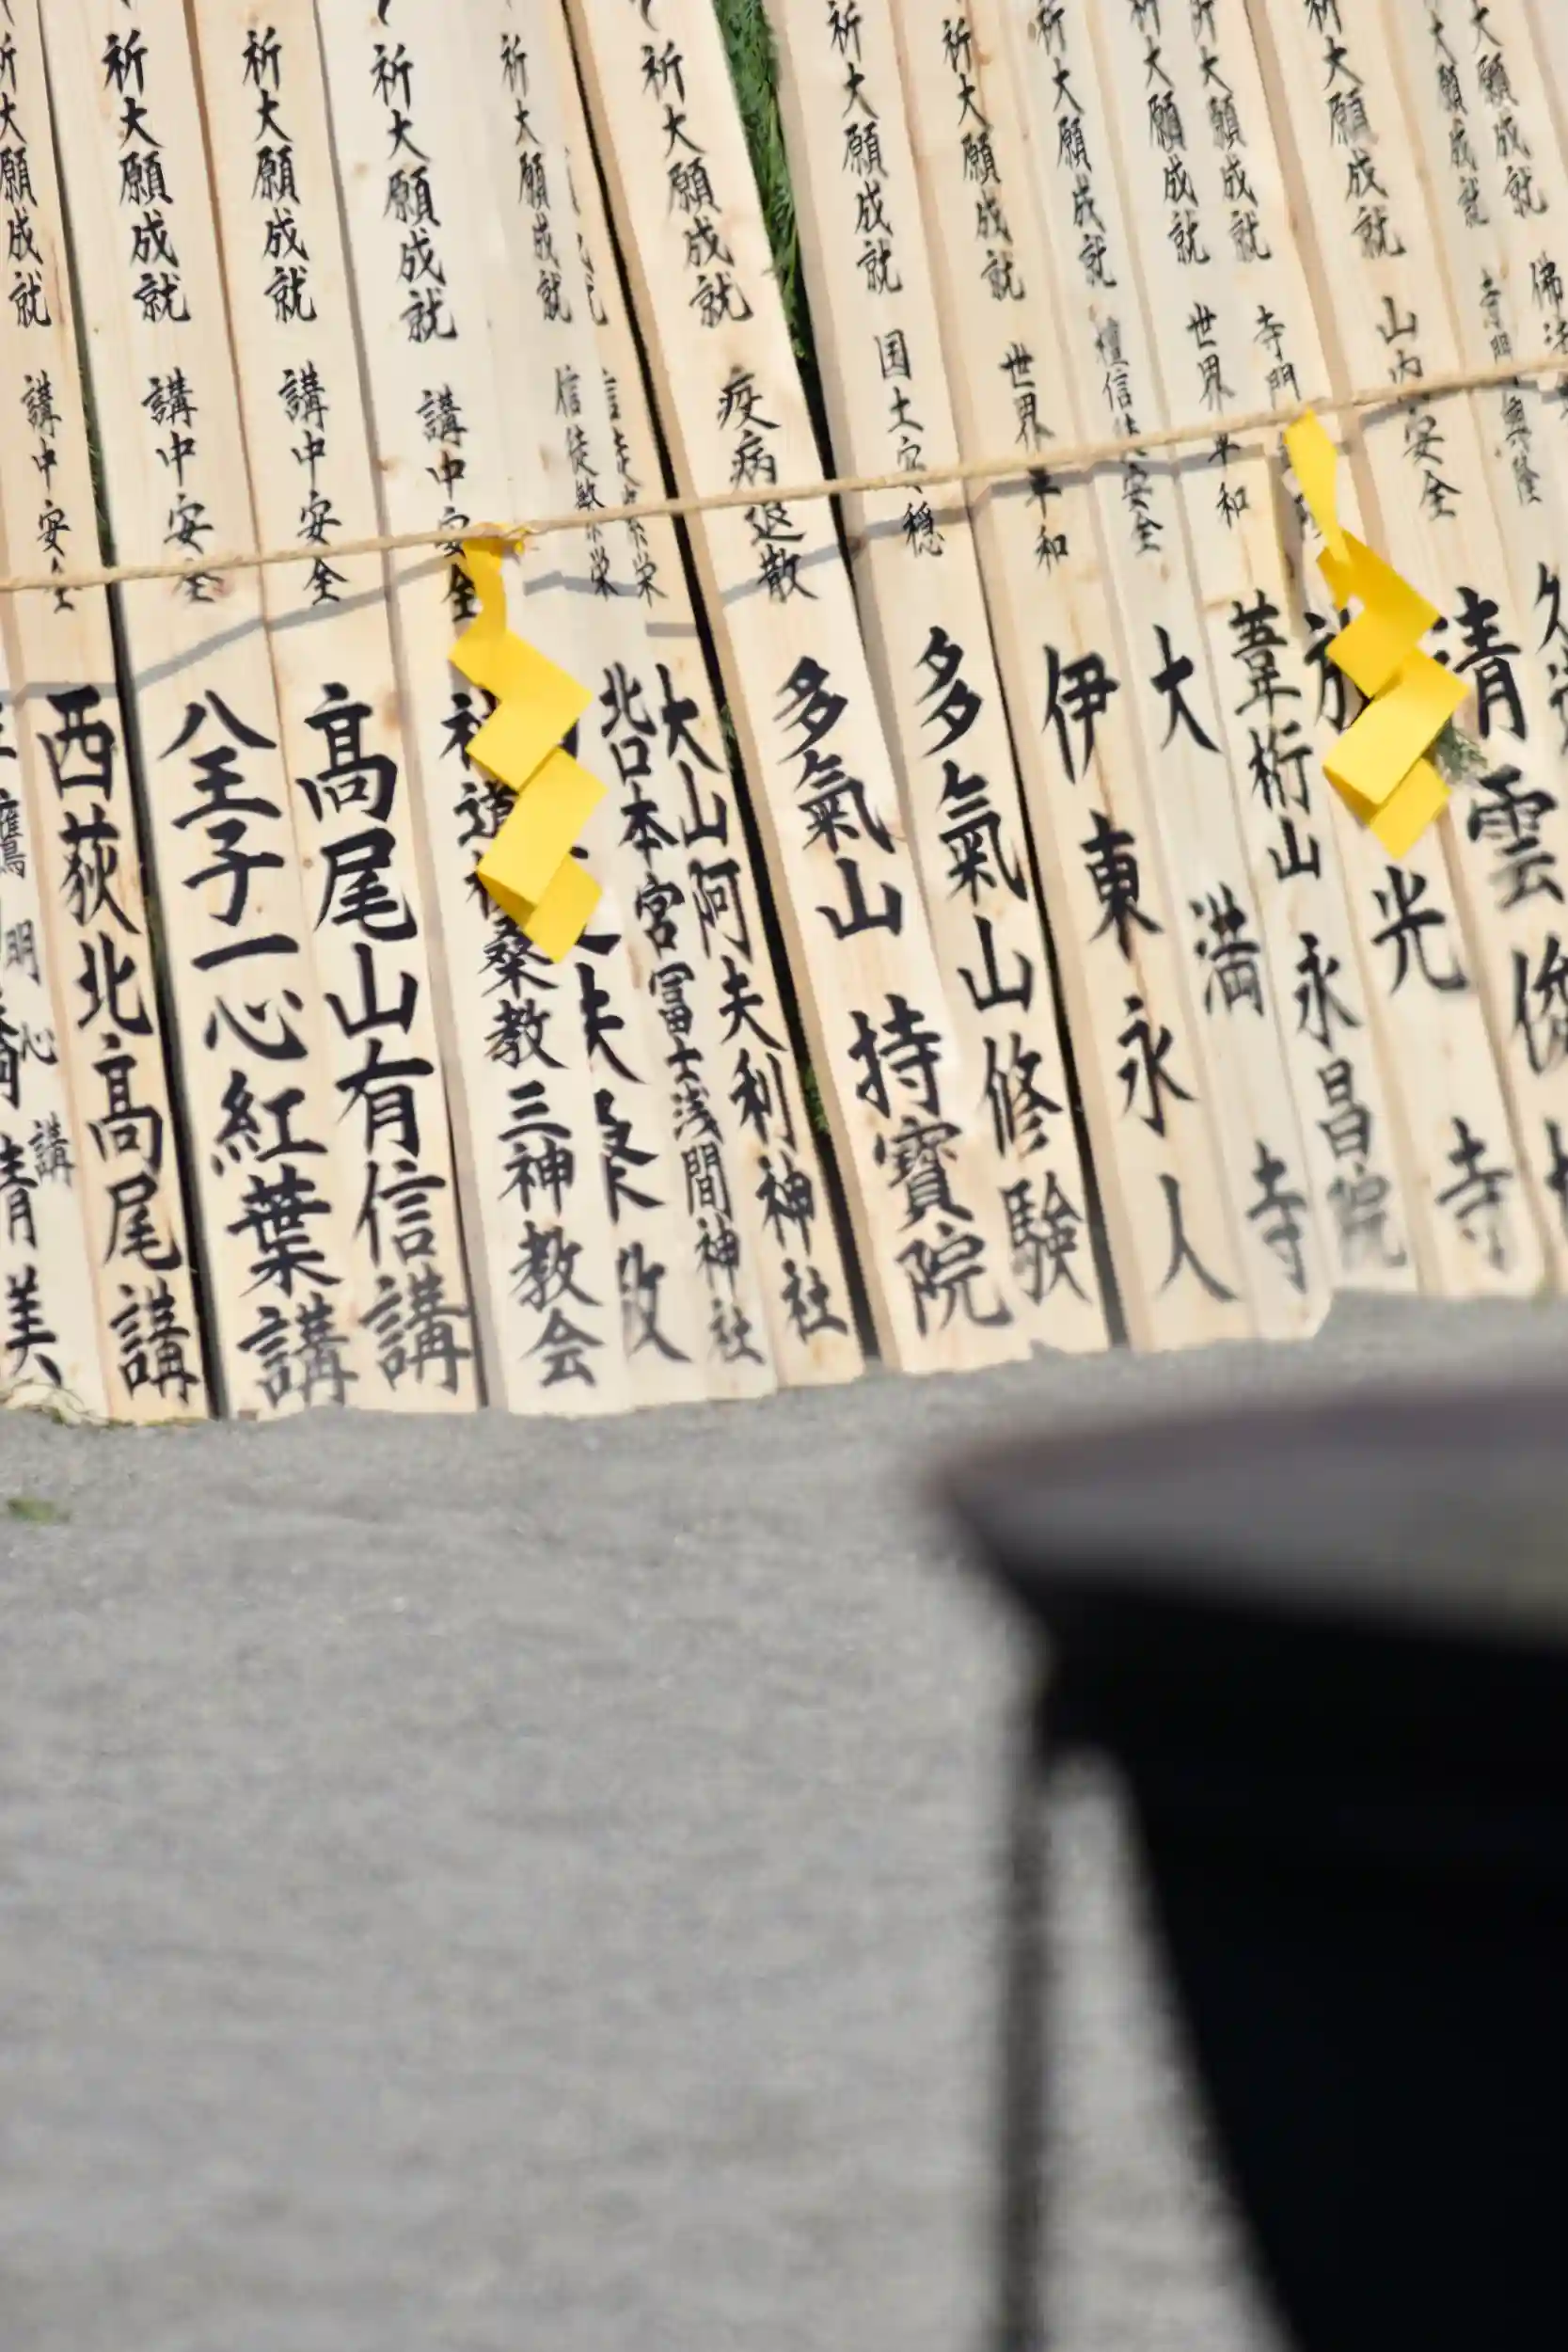 大願成就
大願成就 寺門興隆
祈大願成就 山内安全 清雲俊
祈大願成就 寺門 光寺
祈大願成就 世界平和 葦桁山永昌院
祈大願成就 檀信徒安全 大満寺
祈大願成就 世界平和 伊東永人
祈大願成就 国土安穏 多氣山修験
祈大願成就 疫病退散 多氣山持寶院
大山阿夫利神社
祈大願成就 信徒繁栄 北口本宮冨士浅間神社
祈大願成就 講中安全 神道扶桑教三神教会
祈大願成就 講中安全 高尾山有信講
祈大願成就 講中安全 八王子一心紅葉講
祈大願成就 講中安全 西荻北高尾講
鷹明心講
清美